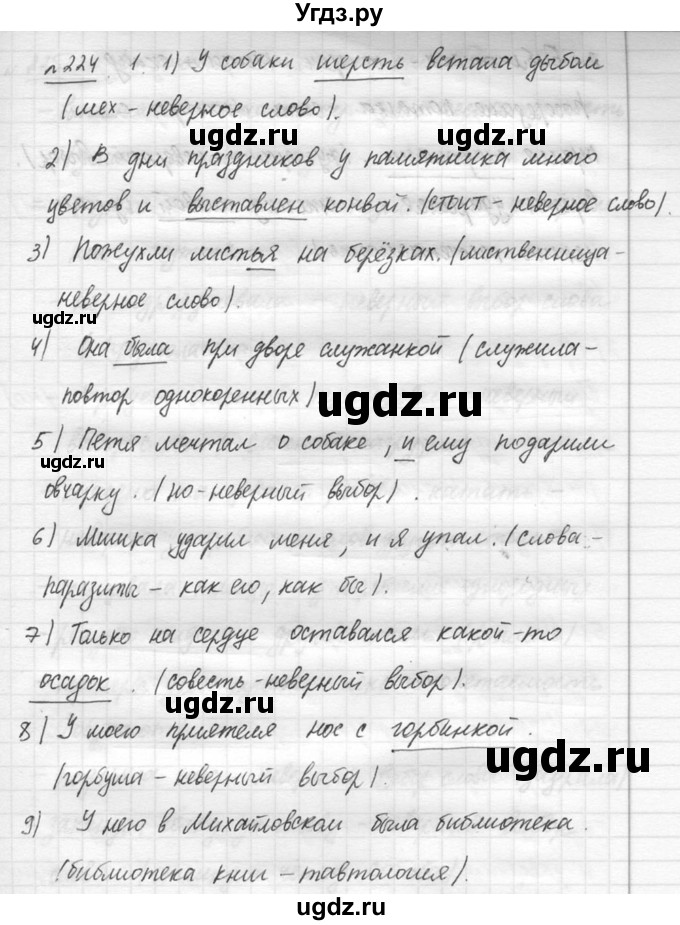 Угдз.ру
№224 1. 1) У собаки шерсть встала дыбом
(мех - неверное слово).
ugdz.ru ugdz.ru
2) В дни праздников у памятника много
цветов и выставлен конвой. (стоит - неверное слово).
3) Пожухли листья на берёзках. (лиственница -
неверное слово).
ugdz.ru
4) Она была при дворе служанкой (служила -
повтор однокоренных)
ugdz.ru
5) Петя мечтал о собаке, и ему подарили
ugdz.ru
овчарку. (но - неверный выбор).
6) Мишка ударил меня, и я упал. (слова -
паразиты - как его, как бы).
ugdz.ru
7) Только на сердце оставался какой-то
осадок. (совесть - неверный выбор).
ugdz.ru
8) У моего приятеля нос с горбинкой.
ugdz.ru
(горбуша - неверный выбор).
9) У него в Михайловском была библиотека.
(библиотека книг - тавтология).
ugdz.ru
ugdz.ru